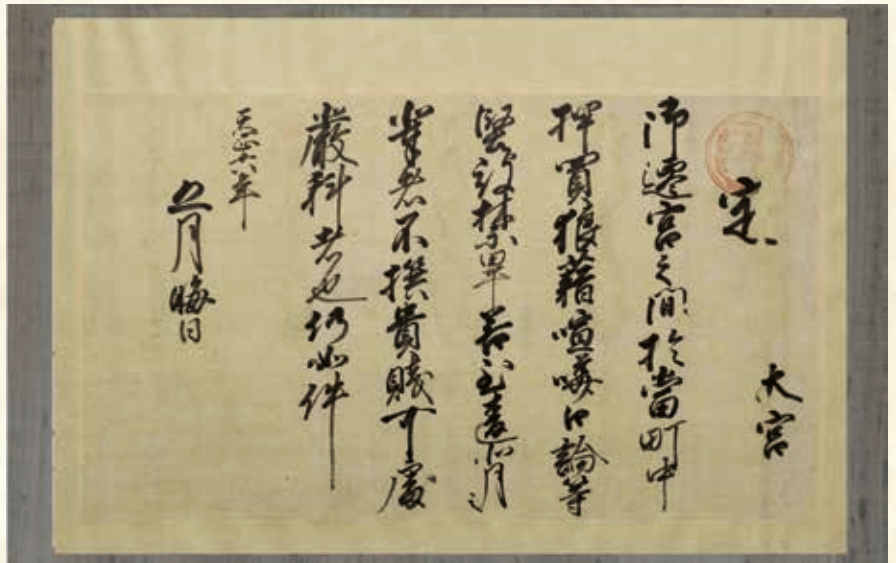 大宮
定
御遷宮之間於當町中
押買狼藉喧嘩口論等
堅被禁畢若違背之
輩者不撰貴賤可處
嚴科者也仍如件
天正六年
五月晦日